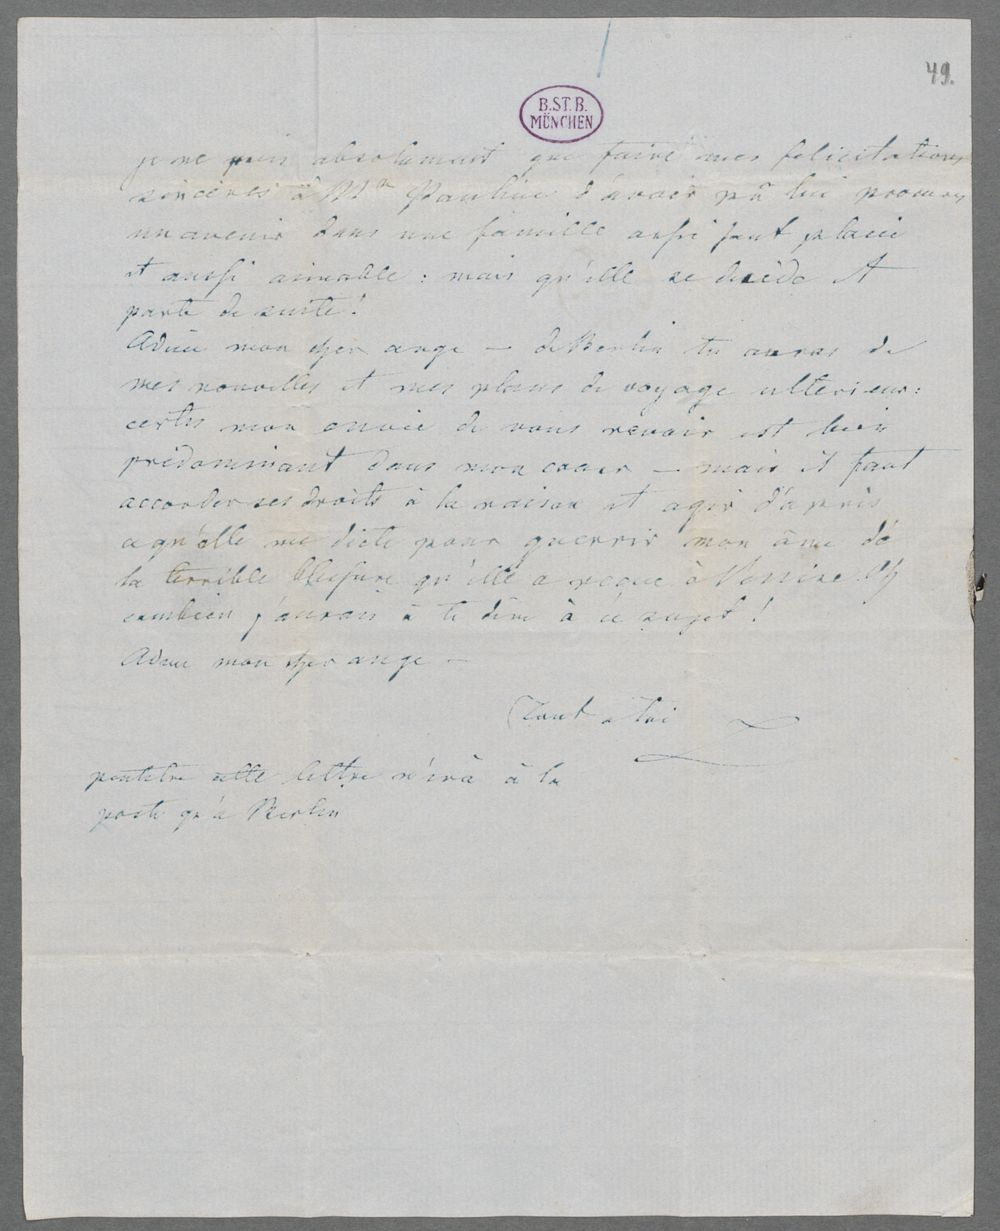 49.
B.ST.B.
MÜNCHEN
je ne puis absolument que faire mes felicitations
sincères à Mlle Pauline d'avoir pû lui
un avenir dans une famille aussi haut placée
et aussi aimable : mais qu'elle se decide et
parte de suite !
Adieu mon cher ange — de Berlin tu auras de
mes nouvelles et mes plans de voyage ulterieur :
certes mon envie de vous revoir est bien
prédominant dans mon coeur — mais il faut
accorder ses droits à la raison et agir d'après
ce qu'elle me dicte pour guerrir mon âme de
la terrible blessure qu'elle a reçue à
combien j'aurais à te dire à ce sujet !
Adieu mon cher ange —
Tout à toi
peutetre cette lettre n'ira à la
poste qu'à Berlin